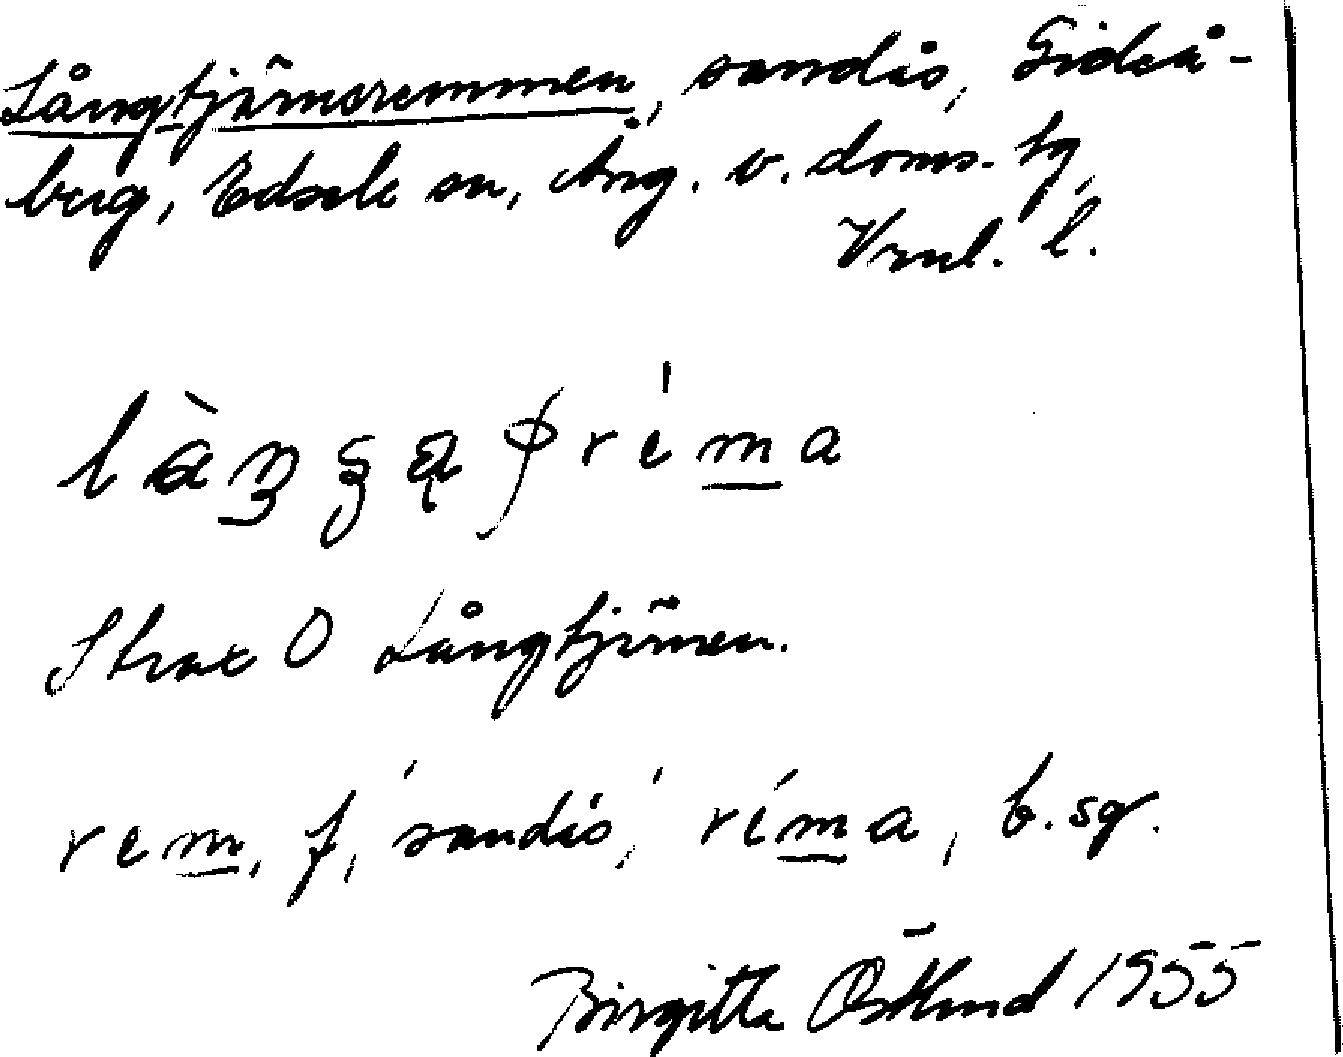 Långtjärnsremmen, sandås, Gideå-
berg, Edsele sn, Ång. v. doms. tg,
Vnl. l.
rém̲a
Strax O Långtjärnen.
rem̲, f, 'sandås', rém̲a, b. sg.
Birgitta Östlund 1955